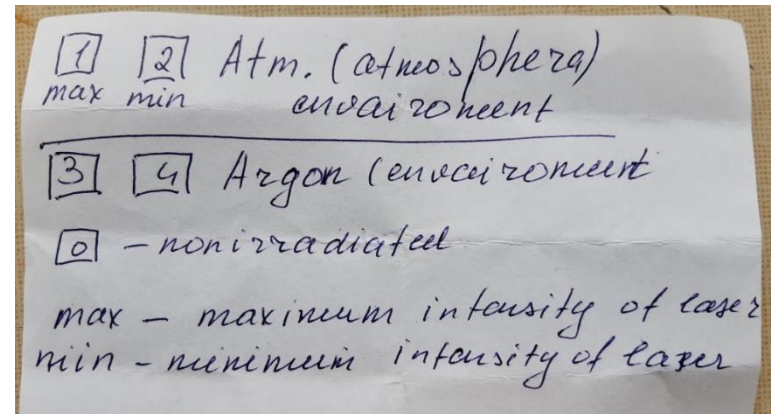 1 2 Atm. (atmosphera)
max min envaironment
3 4 Argon (envaironment
0 - nonirradiated
max - maximum intensity of laser
min - minimum intensity of laser